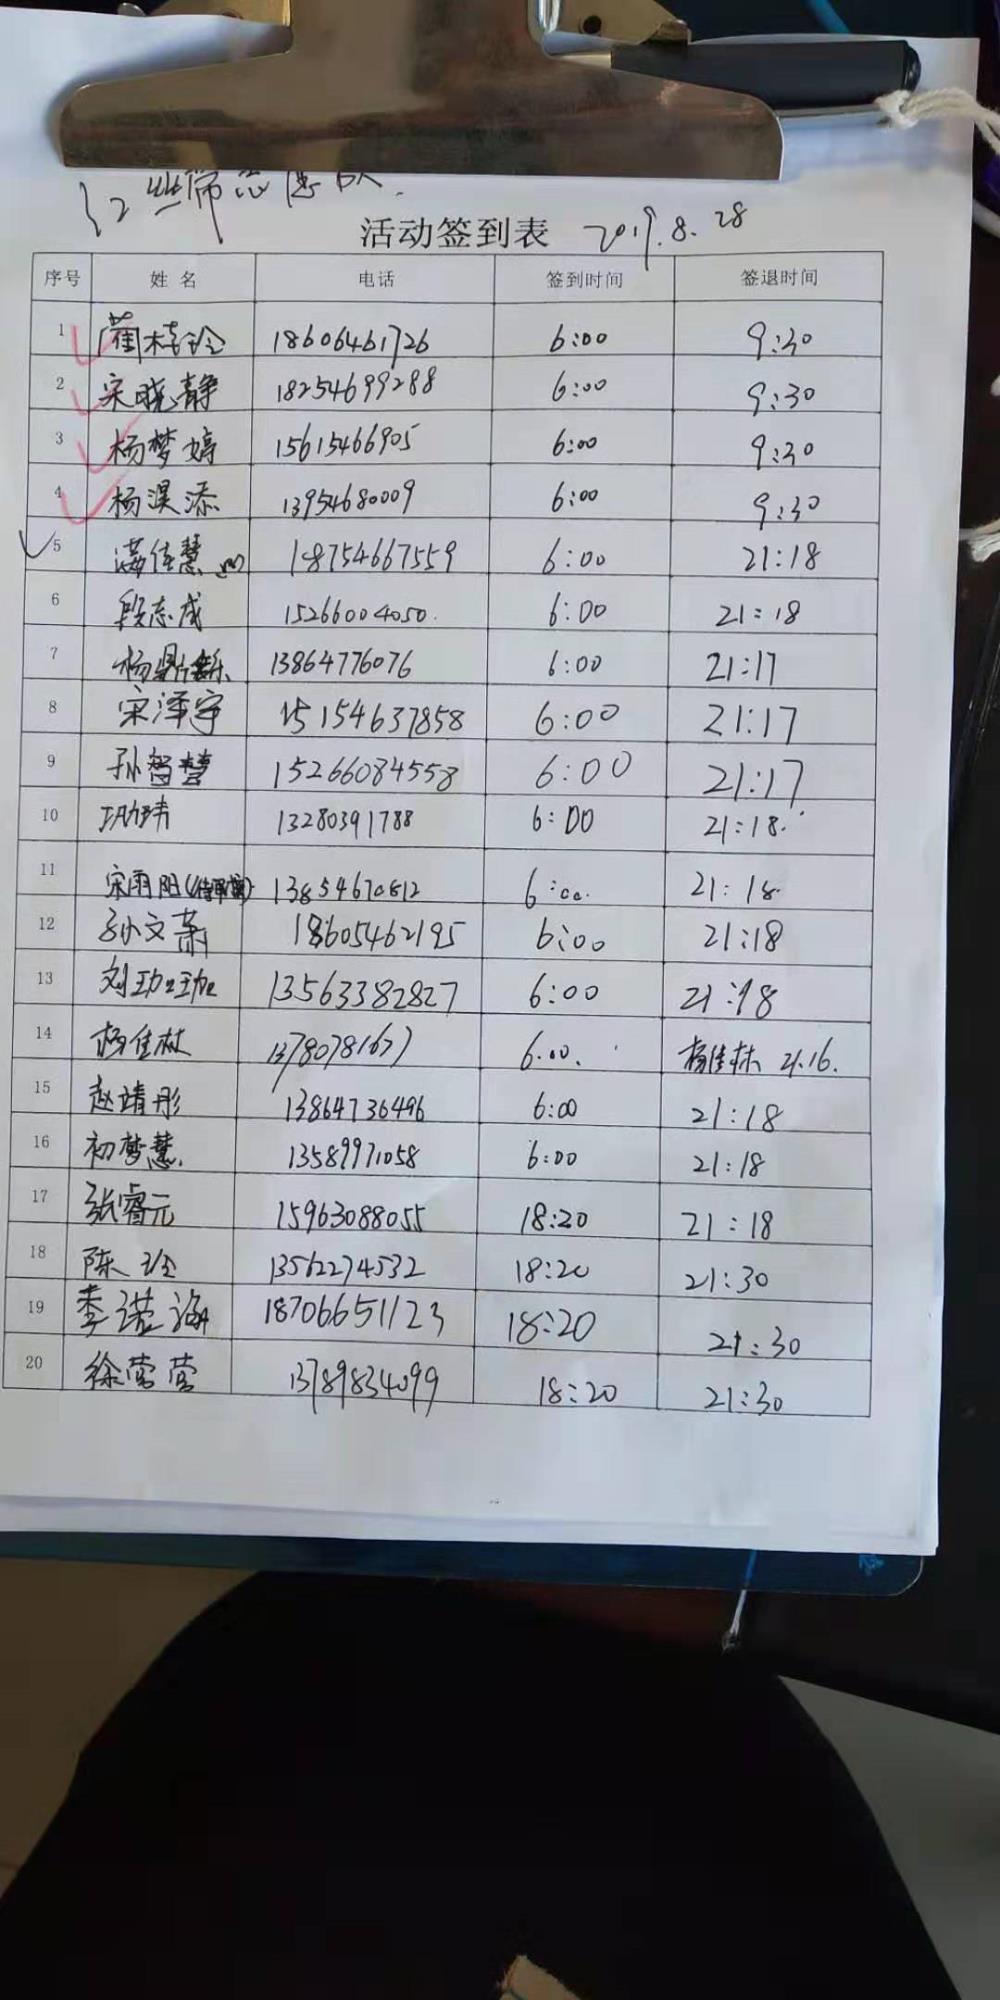 活动签到表 2019.8.28
序号 姓名 电话 签到时间 签退时间
1 桂玲 18606461726 6:00 9:30
2 宋晓静 18254699288 6:00 9:30
3 杨梦婷 15615466905 6:00 9:30
4 杨淏添 13954680009 6:00 9:30
5 满佳慧 18754667559 6:00 21:18
6 段志成 15266004050. 6:00 21:18
7 杨鼎 13864776076 6:00 21:17
8 宋泽宇 15154637858 6:00 21:17
9 孙智慧 15266084558 6:00 21:17
10 13280391788 6:00 21:18.
11 宋雨阳 13854670812 6:00. 21:18.
12 孙文萧 18605462195 6:00 21:18
13 刘珈珈 13563382827 6:00 21:18
14 杨佳林 13780781677 6.00. 杨佳林 21.16.
15 赵靖彤 13864736496 6:00 21:18
16 初梦慧 13589971058 6:00 21:18
17 张睿元 15963088055 18:20 21:18
18 陈玲 13562274532 18:20 21:30
19 李诺涵 18706651123 18:20 21:30
20 徐莹莹 13789834099 18:20 21:30